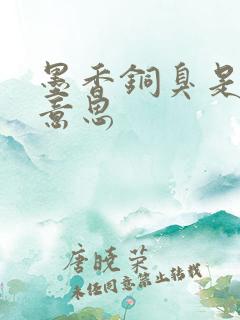 墨香銅臭是
意思
唐曉荣
未经同意禁止转载